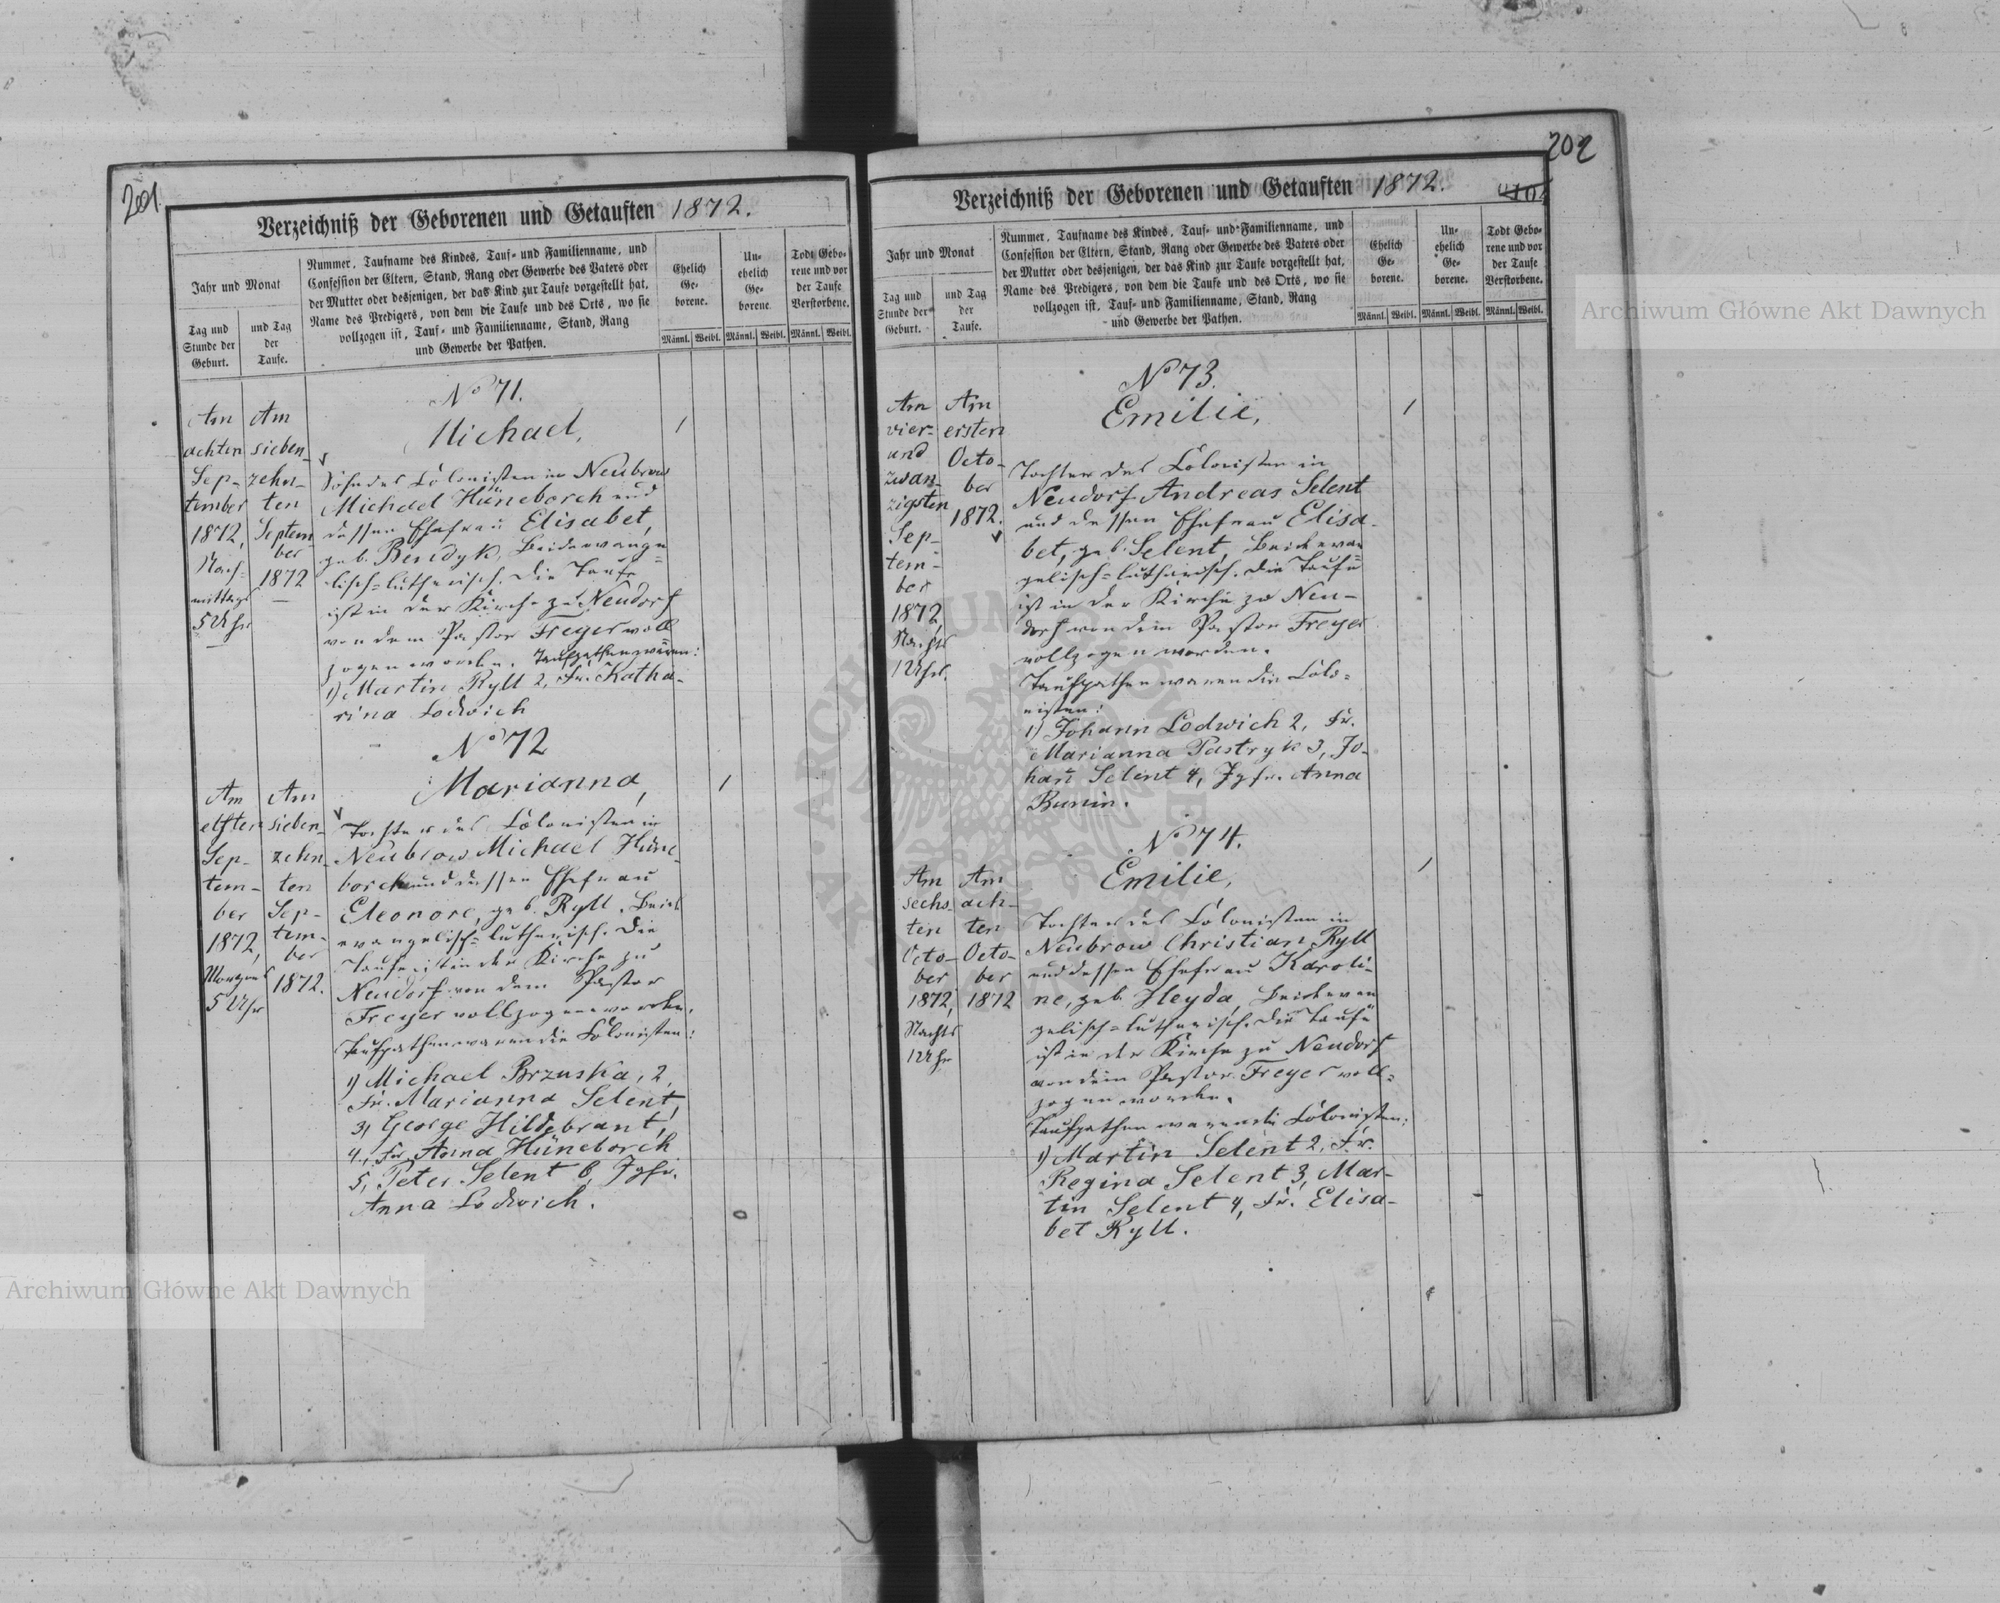 201.
Verzeichniß der Geborenen und Getauften 1872.
Jahr und Monat
Tag und Stunde der Geburt.
und Tag der Taufe.
Nummer, Taufname des Kindes, Tauf- und Familienname, und
Confession der Eltern, Stand, Rang oder Gewerbe des Vaters oder
der Mutter oder desjenigen, der das Kind zur Taufe vorgestellt hat,
Name des Predigers, von dem die Taufe und des Orts, wo sie
vollzogen ist, Tauf- und Familienname, Stand, Rang
und Gewerbe der Pathen.
Ehelich Ge- borene.
Un- ehelich Ge- borene.
Todt Gebo- rene und vor der Taufe Verstorbene.
Männl. Weibl. Männl. Weibl. Männl. Weibl.
Am
achten
Sep-
tember
1872,
Nach-
mittags
5 Uhr
Am
sieben-
zehn-
ten
Septem-
ber
1872
No 71.
Michael,
Sohn des Colonisten in Neubrow
Michael Hüneborch und
dessen Ehefrau Elisabet,
geb. Bendyk, Beide evange-
lisch-lutherisch. Die Taufe
ist in der Kirche zu Neudorf
von dem Pastor Freyer voll
zogen worden. Taufpathen waren:
1) Martin Ryll 2, Fr. Katha-
rina Lodwich
Am
elften
Sep-
tem-
ber
1872,
Morgens
5 Uhr
Am
sieben-
zehn-
ten
Sep-
tem-
ber
1872.
No 72
Marianna,
Tochter des Colonisten in
Neubrow Michael Hüne-
borch und dessen Ehefrau
Eleonore, geb. Ryll, Beide
evangelisch-lutherisch. Die
Taufe ist in der Kirche zu
Neudorf von dem Pastor
Freyer vollzogen worden.
Taufpathen waren die Colonisten:
1) Michael Brzuska, 2,
Fr. Marianna Selent,
3, George Hildebrant,
4., Fr. Anna Hüneborch
5, Peter Selent 6, Jgfr.
Anna Lodwich.
202
Verzeichniß der Geborenen und Getauften 1872.
Jahr und Monat
Tag und Stunde der Geburt.
und Tag der Taufe.
Nummer, Taufname des Kindes, Tauf- und Familienname, und
Confession der Eltern, Stand, Rang oder Gewerbe des Vaters oder
der Mutter oder desjenigen, der das Kind zur Taufe vorgestellt hat,
Name des Predigers, von dem die Taufe und des Orts, wo sie
vollzogen ist, Tauf- und Familienname, Stand, Rang
und Gewerbe der Pathen.
Ehelich Ge- borene.
Un- ehelich Ge- borene.
Todt Gebo- rene und vor der Taufe Verstorbene.
Männl. Weibl. Männl. Weibl. Männl. Weibl.
Am
vier-
und
zwan-
zigsten
Sep-
tem-
ber
1872,
Nachts
1 Uhr.
Am
ersten
Octo-
ber
1872.
No 73.
Emilie,
Tochter des Colonisten in
Neudorf Andreas Selent
und dessen Ehefrau Elisa-
bet, geb. Selent, Beide evan
gelisch-lutherisch. Die Taufe
ist in der Kirche zu Neu-
dorf von dem Pastor Freyer
vollzogen worden.
Taufpathen waren die Colo-
nisten:
1) Johann Lodwich 2, Fr.
Marianna Pastryk 3, Jo-
hañ Selent 4, Jgfr. Anna
Bunin.
Am
sechs-
ten
Octo-
ber
1872,
Nachts
1 Uhr
Am
ach-
ten
Octo-
ber
1872
No 74.
Emilie,
Tochter des Colonisten in
Neubrow Christian Ryll
und dessen Ehefrau Karoli-
ne, geb. Heyda, Beide evan
gelisch-lutherisch. Die Taufe
ist in der Kirche zu Neudorf
von dem Pastor Freyer voll-
zogen worden.
Taufpathen waren die Colonisten:
1) Martin Selent 2, Fr.
Regina Selent 3, Mar-
tin Selent 4, Fr. Elisa-
bet Ryll.
Archiwum Główne Akt Dawnych
Archiwum Główne Akt Dawnych